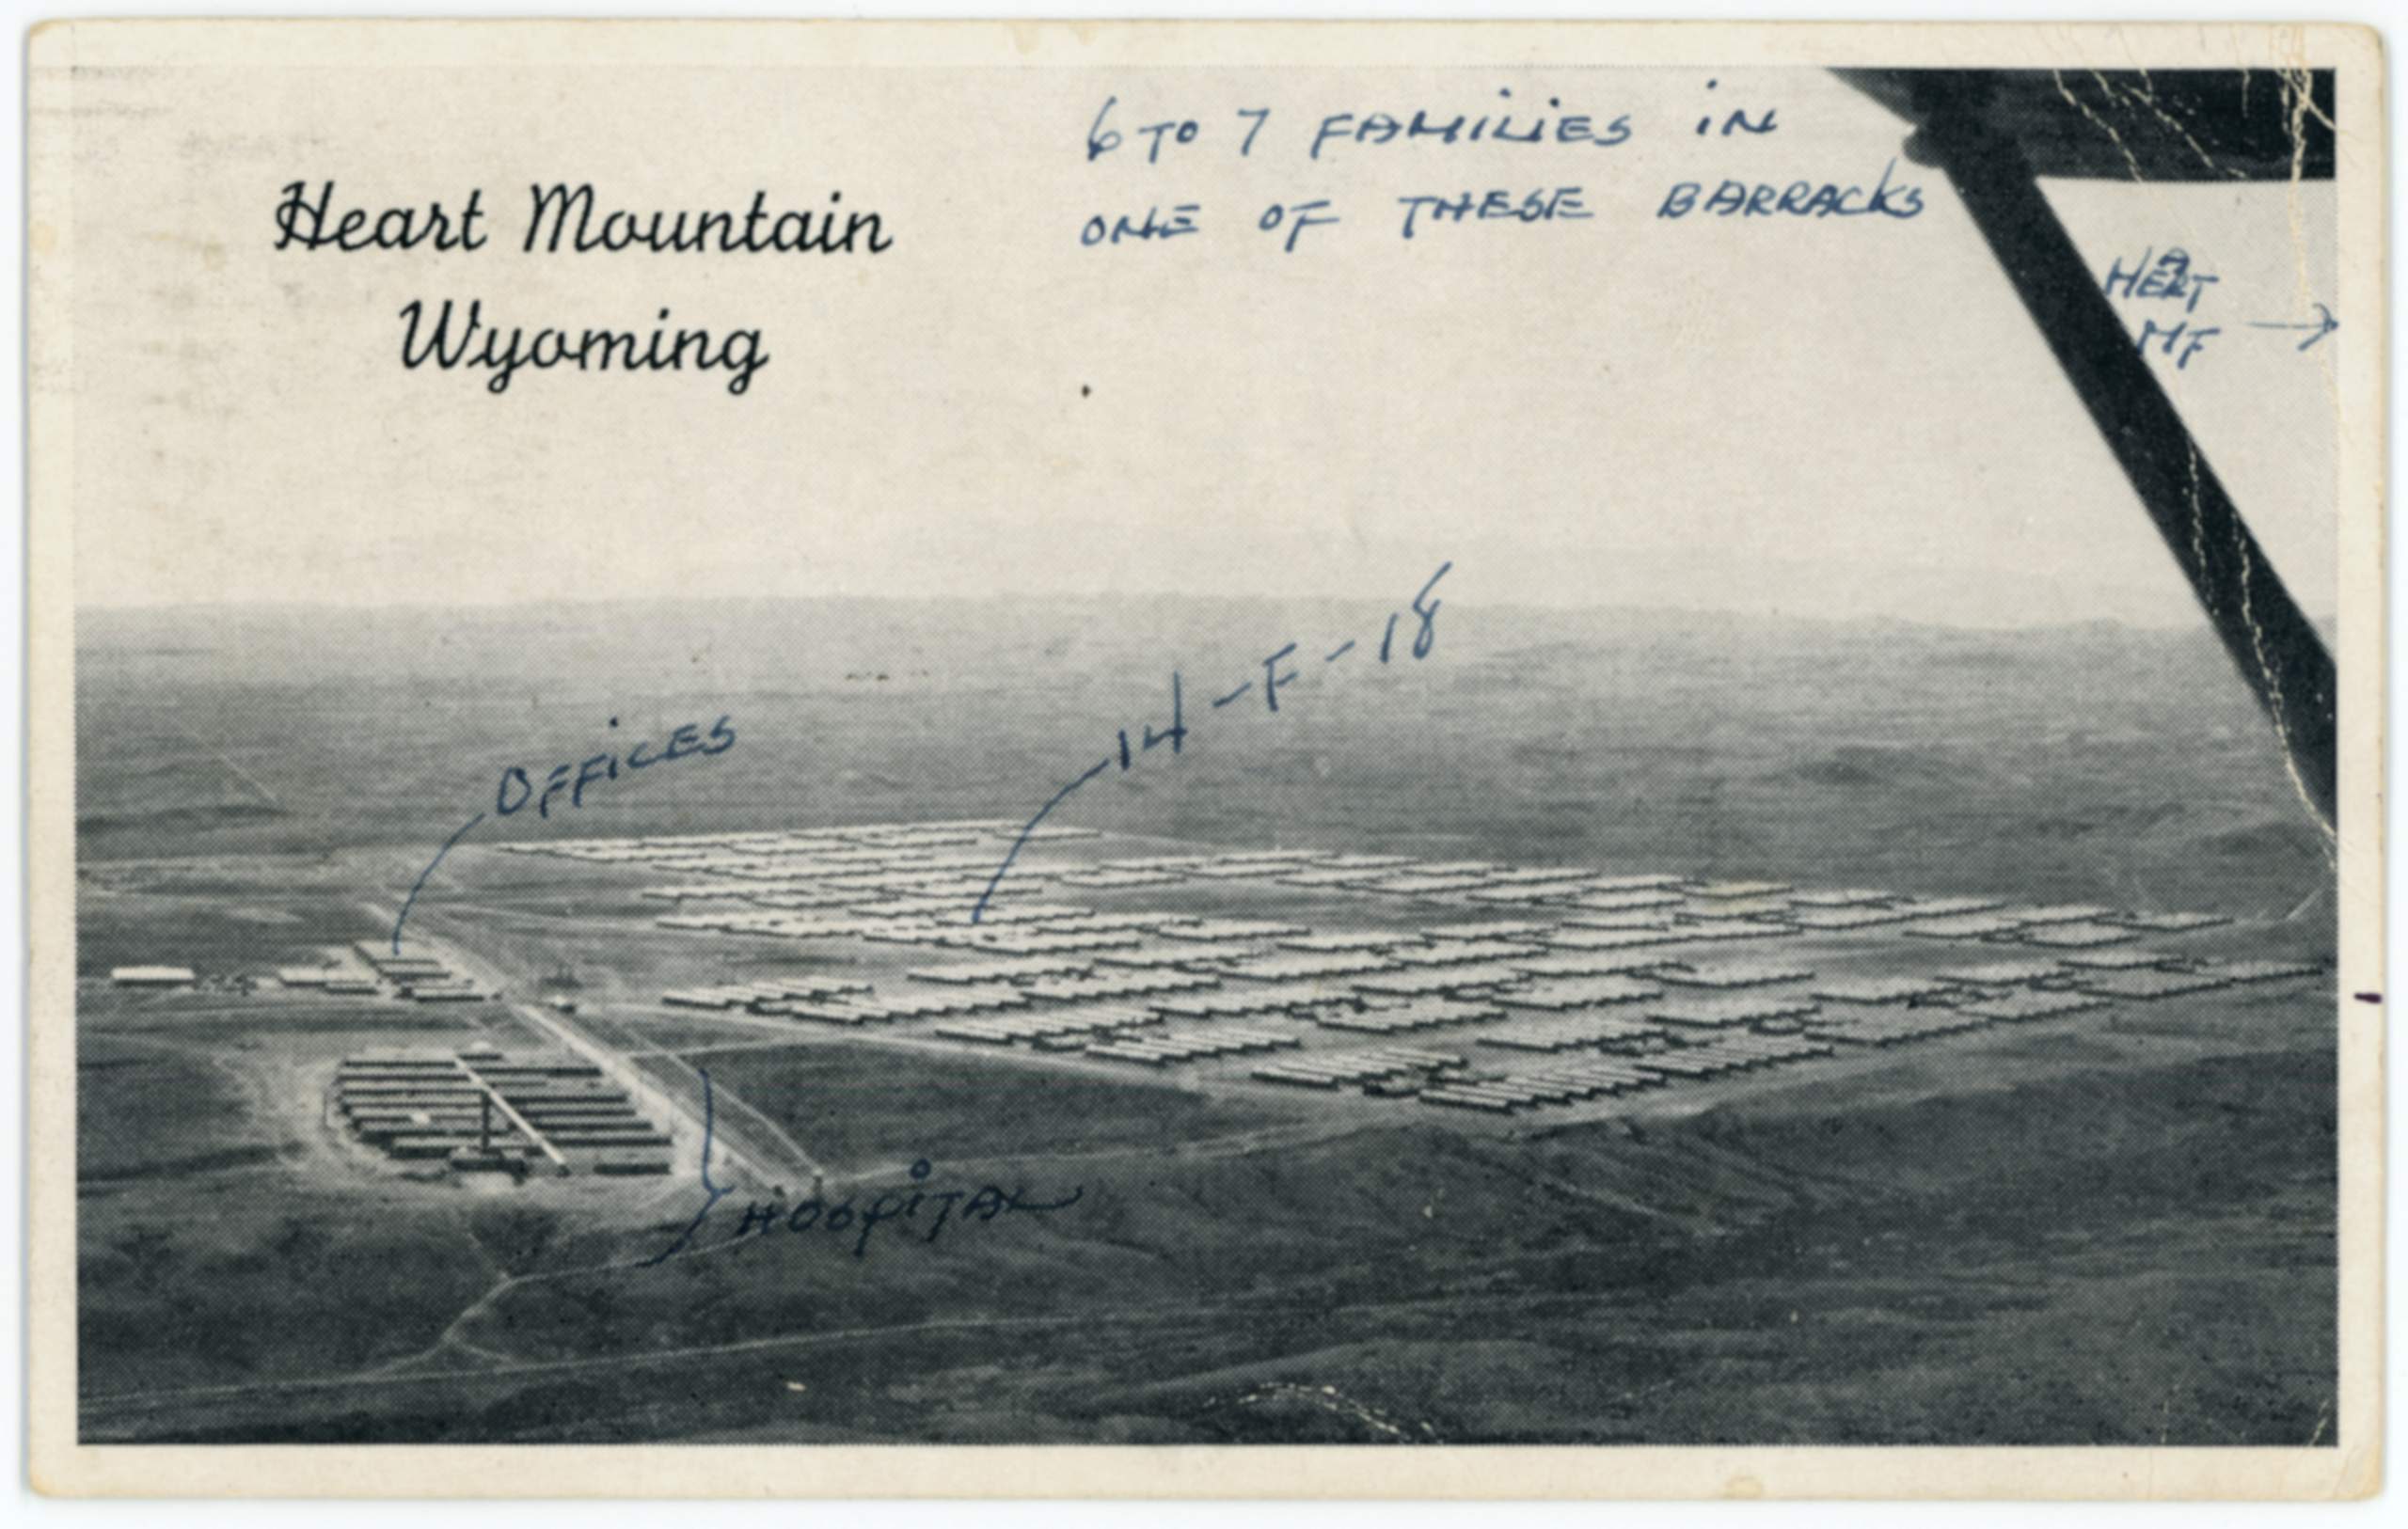 6 TO 7 FAMILIES IN
ONE OF THESE BARRACKS
Heart Mountain
Wyoming
HEART
MT →
14-F-18
OFFICES
HOSPITAL